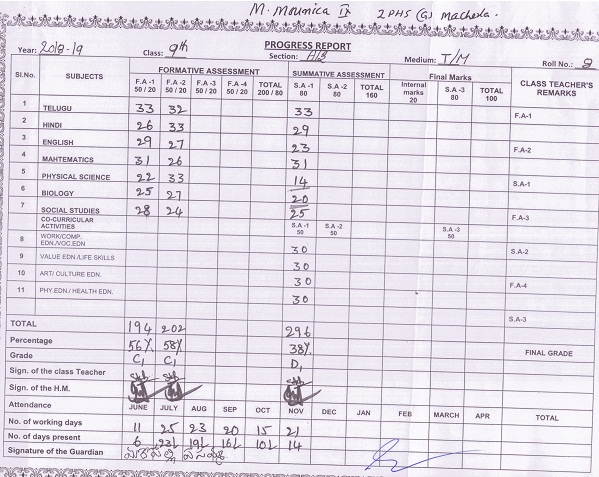 M. Mounica IX ZPHS (G) Macherla.
PROGRESS REPORT
Year: 2018-19 Class: 9th Section: A/B Medium: T/M Roll No.: 9
Sl.No. SUBJECTS FORMATIVE ASSESSMENT SUMMATIVE ASSESSMENT Final Marks CLASS TEACHER'S REMARKS
F.A -1 50 / 20 F.A -2 50 / 20 F.A -3 50 / 20 F.A -4 50 / 20 TOTAL 200 / 80 S.A -1 80 S.A -2 80 TOTAL 160 Internal marks 20 S.A -3 80 TOTAL 100
1 TELUGU 33 32 33 F.A-1
2 HINDI 26 33 29
3 ENGLISH 29 27 23 F.A-2
4 MAHTEMATICS 31 26 31
5 PHYSICAL SCIENCE 22 33 14 S.A-1
6 BIOLOGY 25 27 20
7 SOCIAL STUDIES 28 24 25 F.A-3
CO-CURRICULAR ACTIVITIES S.A -1 50 S.A -2 50 S.A -3 50
8 WORK/COMP. EDN./VOC.EDN 30 S.A-2
9 VALUE EDN./LIFE SKILLS 30
10 ART/ CULTURE EDN. 30 F.A-4
11 PHY.EDN./ HEALTH EDN. 30
S.A-3
TOTAL 194 202 296
Percentage 56% 58% 38% FINAL GRADE
Grade C1 C1 D1
Sign. of the class Teacher
Sign. of the H.M.
Attendance JUNE JULY AUG SEP OCT NOV DEC JAN FEB MARCH APR TOTAL
No. of working days 11 25 23 20 15 21
No. of days present 6 23½ 19½ 16½ 10½ 14
Signature of the Guardian